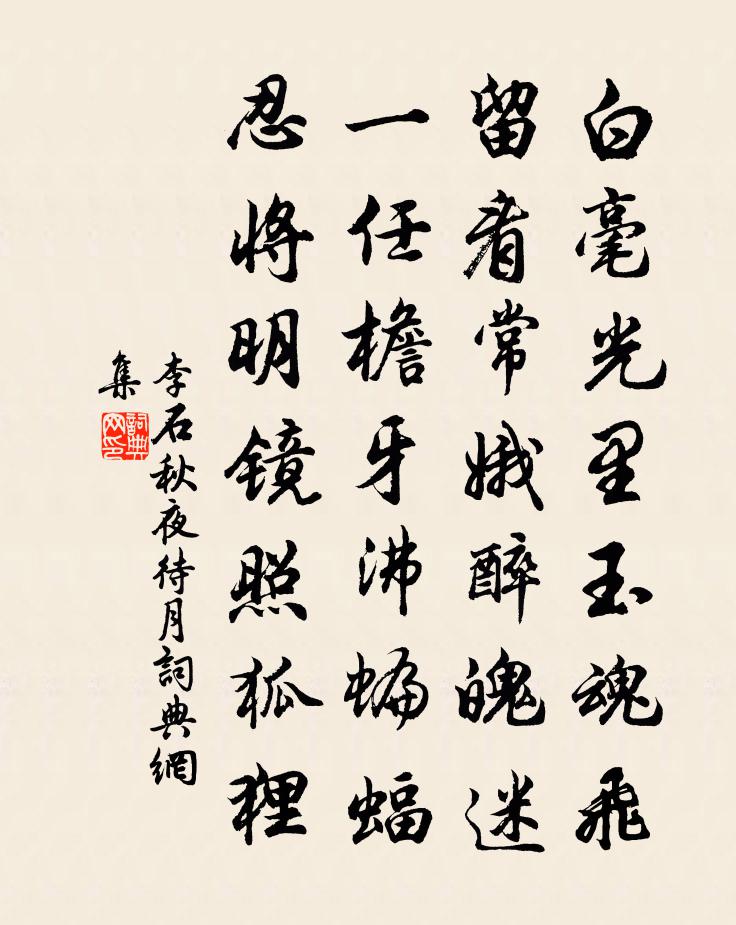 白毫光里玉魂飛
留看常娥醉魄迷
一任檐牙沸蝙蝠
忍将明镜照狐狸
李石秋夜待月詞典網
集
詞典网印